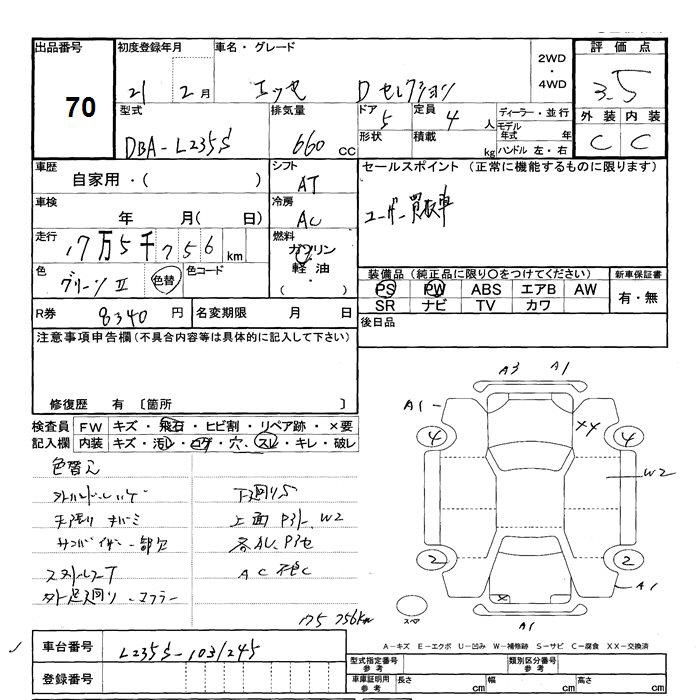 出品番号 初度登録年月 車名・グレード 評価点
70
21 2月 エッセ Dセレクション 2WD・4WD 3.5
型式 排気量 ドア 定員 ディーラー・並行 外装 内装
DBA-L235S 660cc 5 4人 モデル年式 年 C C
形状 積載 kg ハンドル 左・右
車歴 シフト セールスポイント (正常に機能するものに限ります)
自家用・( ) AT
車検 冷房 ユーザー買取車
年 月( 日) AC
走行 燃料
17万5千756km ガソリン
色 色コード 軽油 装備品(純正品に限り○をつけてください) 新車保証書
グリーンII 色替 ( ・ ) PS PW ABS エアB AW 有・無
SR ナビ TV カワ
R券 8340円 名変期限 月 日 後日品
注意事項申告欄(不具合内容等は具体的に記入して下さい)
修復歴 有 〔箇所 〕
検査員 FW キズ・飛石・ヒビ割・リペア跡・×要
記入欄 内装 キズ・汚レ・コゲ・穴・スレ・キレ・破レ
色替え
下廻りS
上面 P3ト、W2
AC
175756km
A3 A1
A1 ×4
4 4
W2
2 2
×
A1
スペア A1
A-キズ E-エクボ U-凹み W-補修跡 S-サビ C-腐食 XX-交換済
車台番号 L235S-1031245
登録番号
型式指定番号 参考 類別区分番号 参考
車庫証明用 参考 長さ cm 幅 cm 高さ cm